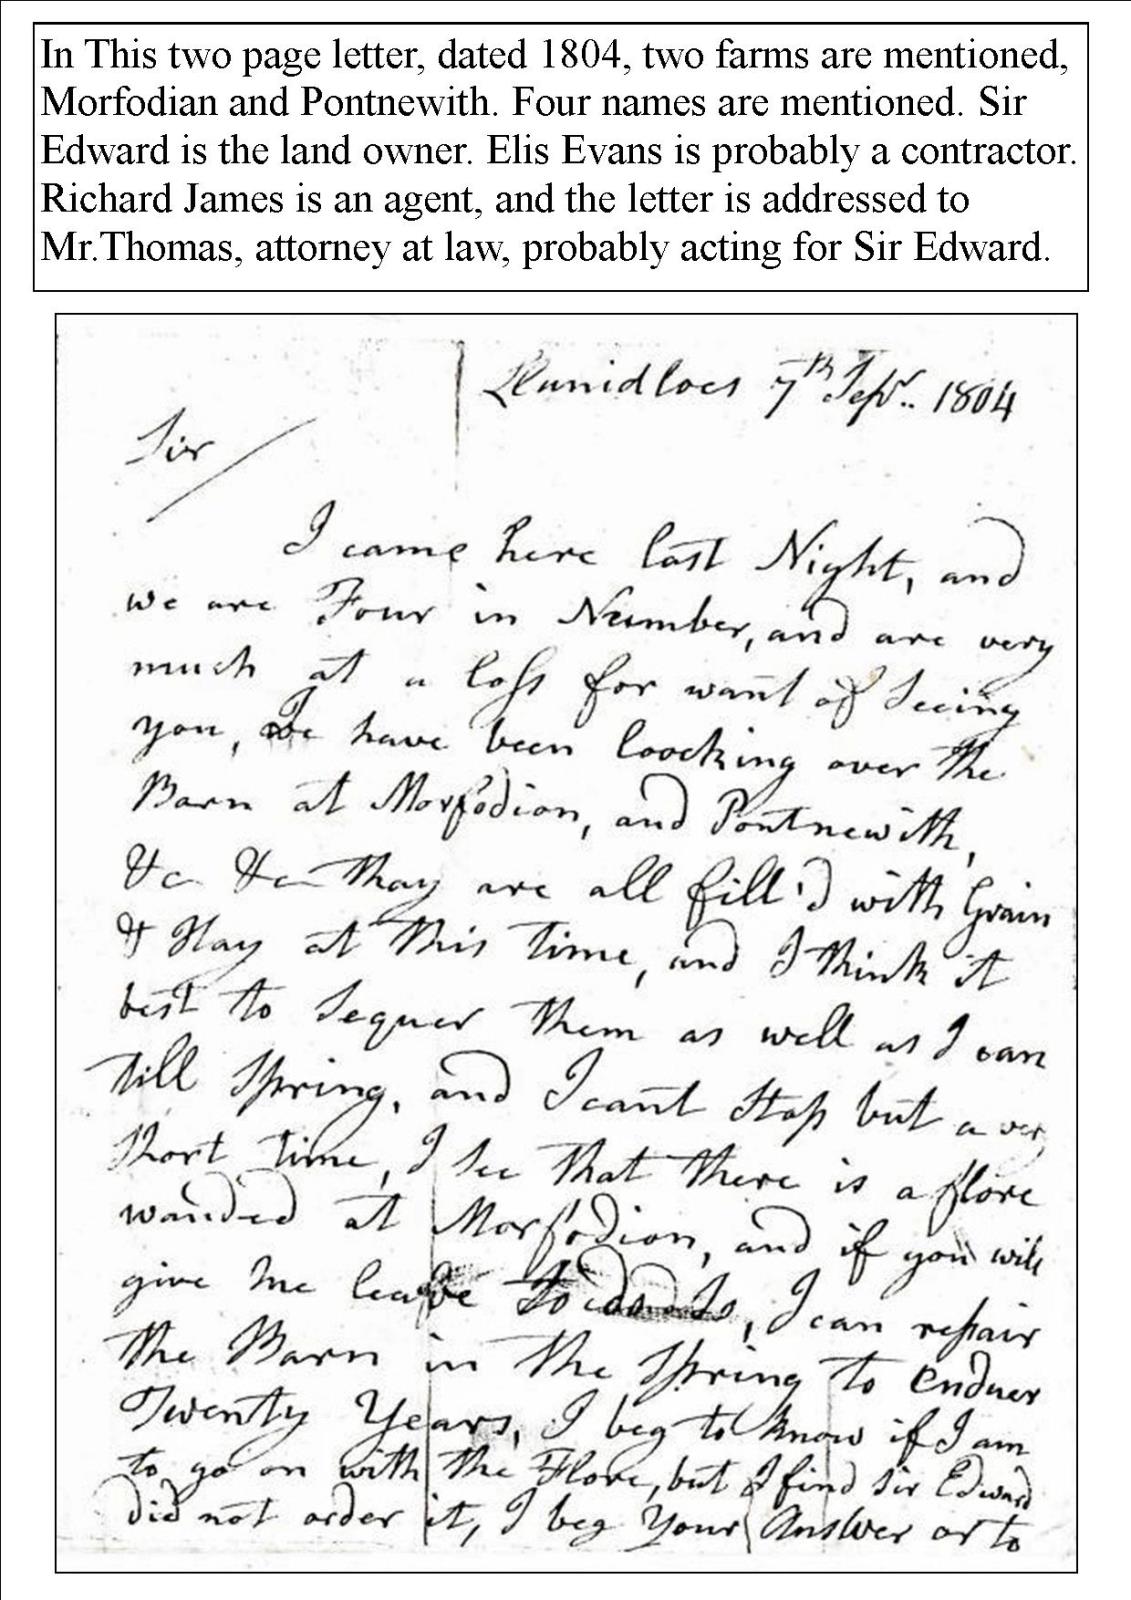 In This two page letter, dated 1804, two farms are mentioned,
Morfodian and Pontnewith. Four names are mentioned. Sir
Edward is the land owner. Elis Evans is probably a contractor.
Richard James is an agent, and the letter is addressed to
Mr.Thomas, attorney at law, probably acting for Sir Edward.
Llanidloes 7th Sepr. 1804
Sir
I came here last Night, and
we are Four in Number, and are very
much at a loss for want of Seeing
you, we have been loocking over the
Barn at Morfodion, and Pontnewith,
&c &c thay are all fill'd with Grain
& Hay at this Time, and I think it
best to Sequer them as well as I can
till Spring, and I cant Stop but a very
Short Time, I See that there is a flore
wanded at Morfodion, and if you will
give me leave to do so, I can repair
the Barn in the Spring to enduer
Twenty Years, I beg to know if I am
to go on with the Flore, but I find Sir Edward
did not order it, I beg your Answer or to